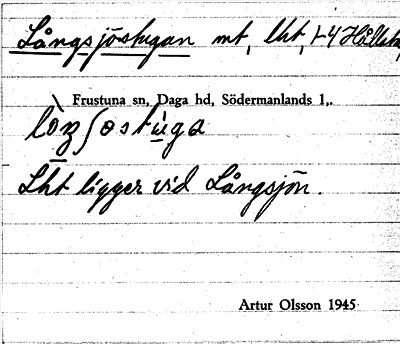 Långsjöstugan mt, lht,
Frustuna sn, Daga hd, Södermanlands l,.
Lht ligger vid Långsjön.
Artur Olsson 1945